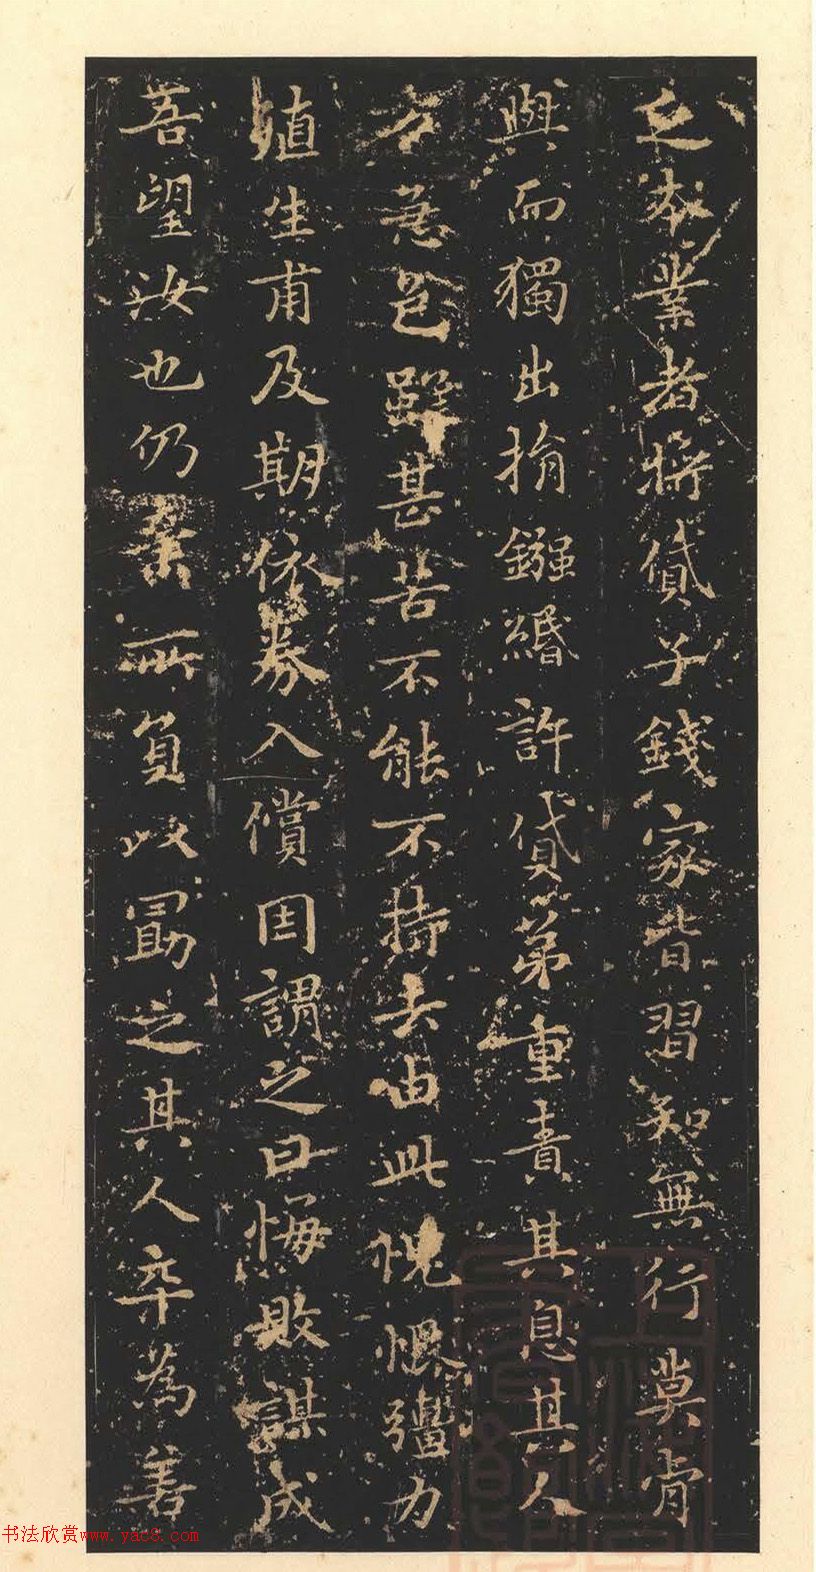 之本業者將貸子錢家皆習知無行莫肯
與而獨出捐鏹緡許貸第重責其息其人
恚邑雖甚苦不能不持去由此愧恨彊力
殖生甫及期依券入償因謂之曰悔敗謀成
吾望汝也仍棄所負以勗之其人卒為善
书法欣赏www.yac8.com